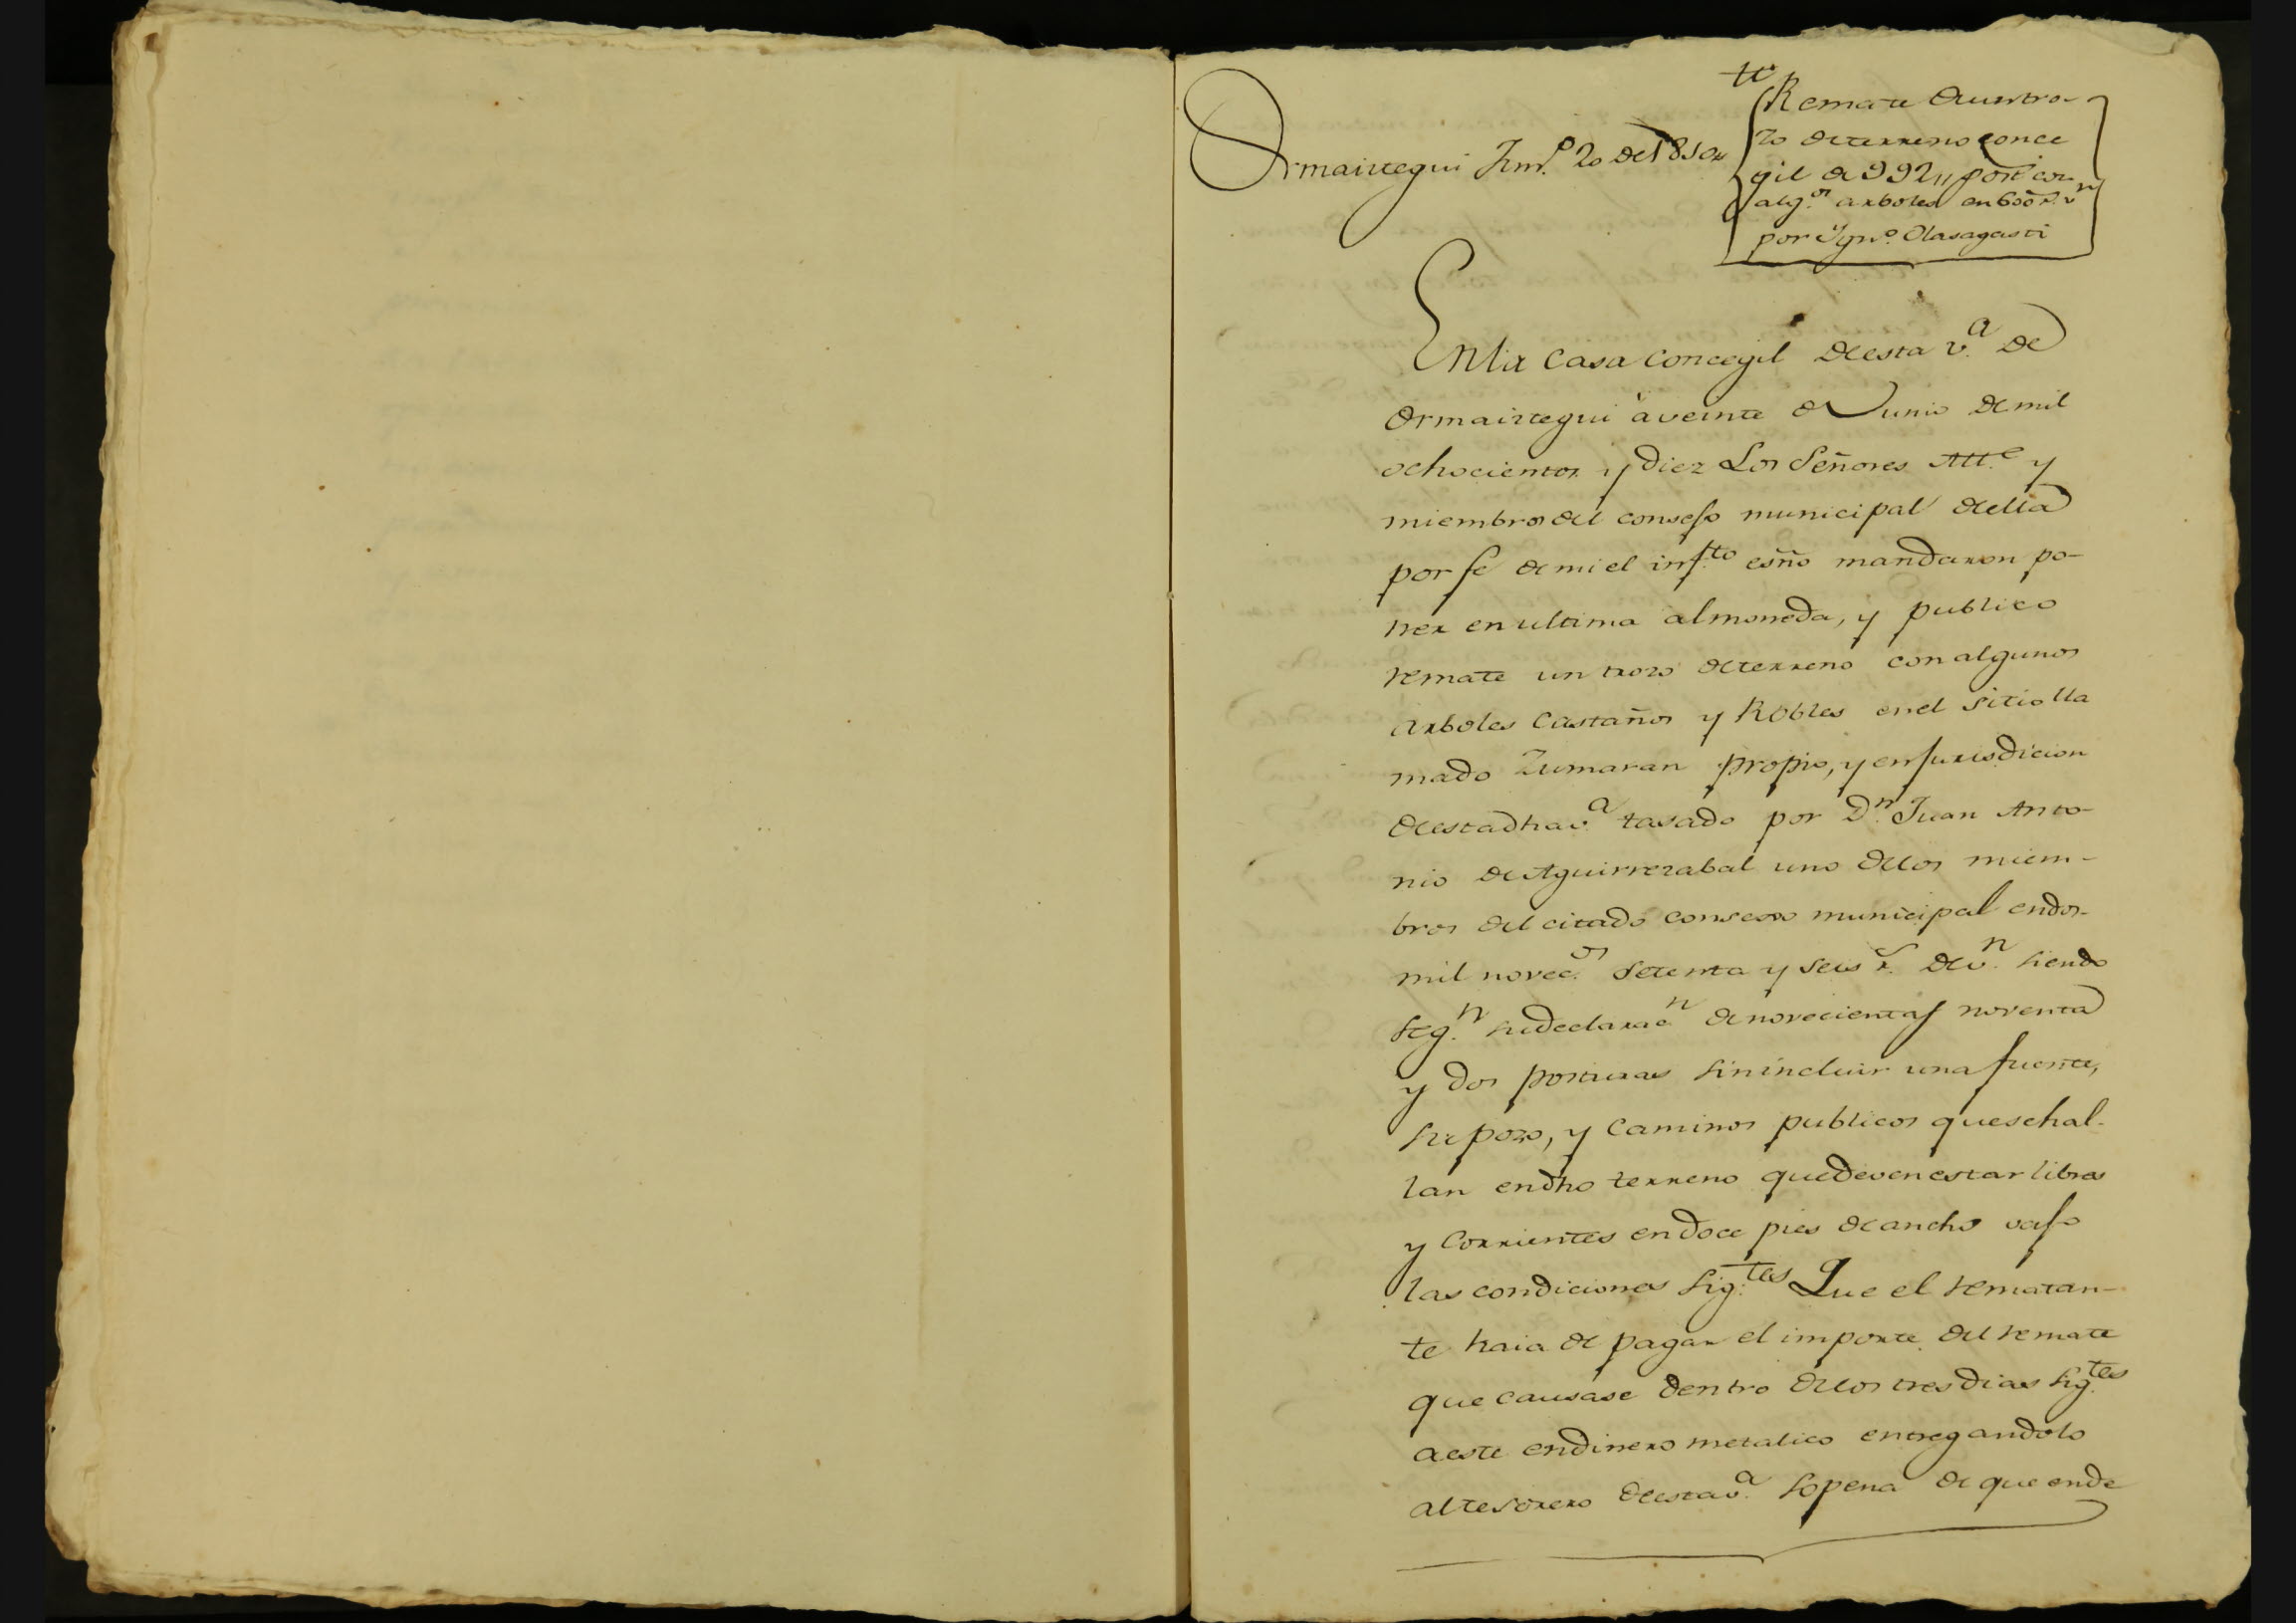 Ormaiztegui Jun.º 20 de 1810
tto
Remate de un tro-
zo de terreno conce
gil de 992,, post.s con
alg.os arboles en 6500 r.s v.n
por Ygn.º Olasagasti
En la Casa Concegil de esta v.a de
Ormaiztegui à veinte de Junio de mil
ochocientos y diez Los Señores Alt.e y
miembros del consejo municipal de ella
por fe de mi el inf.to esño mandaron po-
ner en ultima almoneda, y publico
remate un trozo de terreno con algunos
arboles Castaños y Robles en el sitio lla
mado Zumaran propio, y en jurisdicion
de esta dha v.a tasado por D.n Juan Anto-
nio de Aguirrezabal uno de los miem-
bros del citado consexo municipal en dos-
mil novec.os setenta y seis r.s de v.n siendo
seg.n su declarac.n de novecientas noventa
y dos posturas sin incluir una fuente,
su pozo, y Caminos publicos que se hal-
lan en dho terreno que deven estar libres
y Corrientes en doce pies de ancho vajo
las condiciones sig.tes Que el rematan-
te haia de pagar el importe del remate
que causase dentro de los tres dias sig.tes
a este en dinero metalico entregandolo
al tesorero de esta v.a so pena de que en de